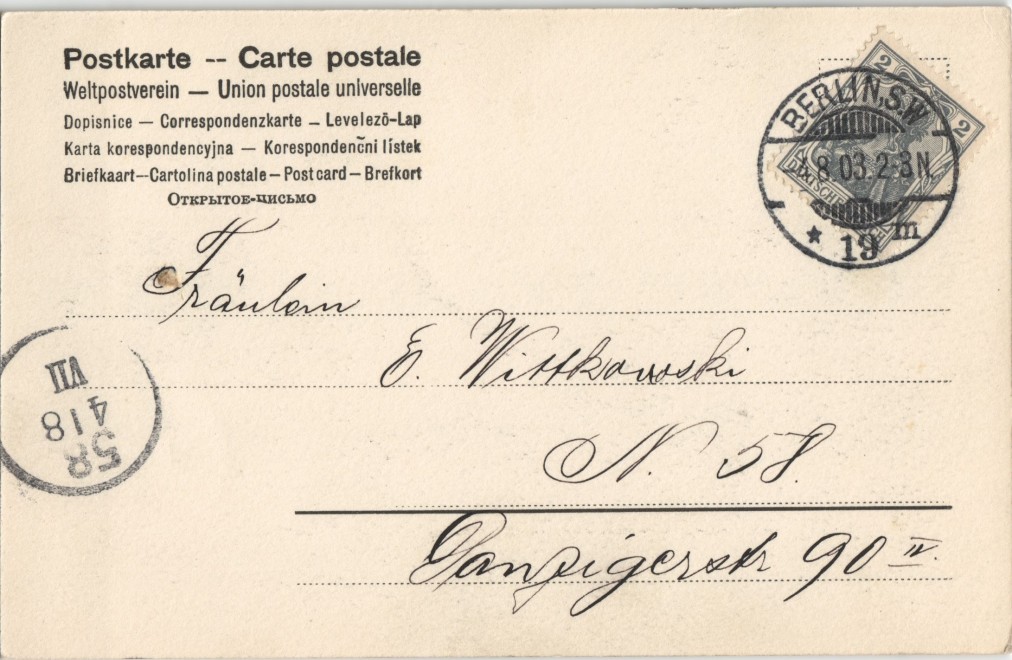 Postkarte -- Carte postale
Weltpostverein — Union postale universelle
Dopisnice — Correspondenzkarte — Levelezö-Lap
Karta korespondencyjna — Korespondenčni lístek
Briefkaart—Cartolina postale—Post card—Brefkort
Открытое-цисьмо
2 2
BERLIN, S.W.
4.8.03.2-3N.
DEUTSCHES
* 19 m
Fräulein
E. Wittkowski
N. 58.
Danzigerstr 90 IV.
VII
418
58